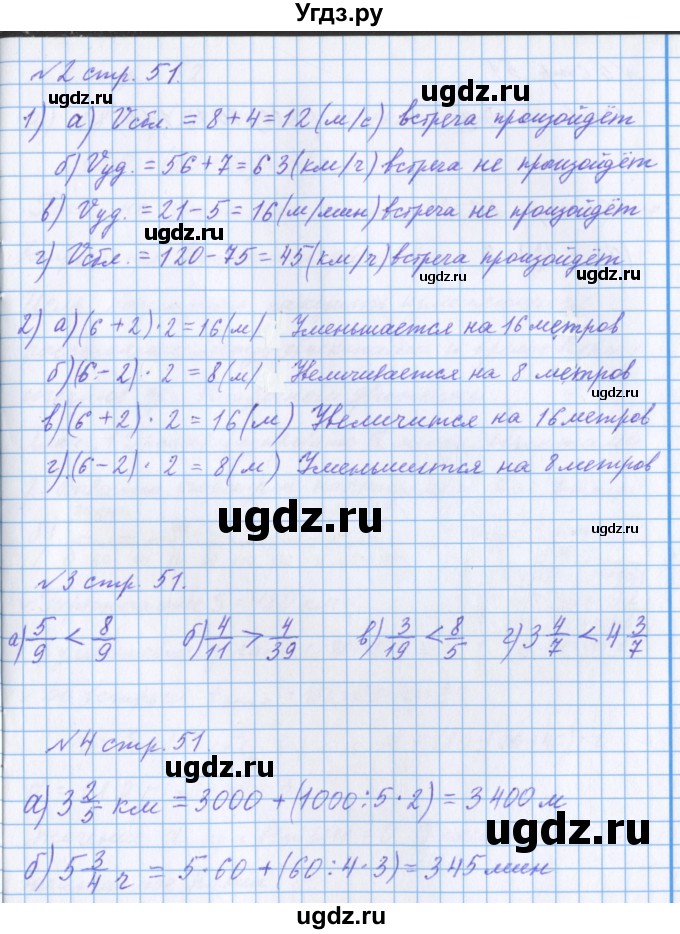 Угдз.ру
№2 стр. 51.
ugdz.ru
1) а) Vсбл. = 8 + 4 = 12 (м/с) встреча произойдёт
б) Vуд. = 56 + 7 = 63 (км/ч) встреча не произойдёт
в) Vуд. = 21 - 5 = 16 (м/мин) встреча не произойдёт
ugdz.ru
г) Vсбл. = 120 - 75 = 45 (км/ч) встреча произойдёт
ugdz.ru ugdz.ru
2) а) (6 + 2) · 2 = 16 (м) Уменьшается на 16 метров
б) (6 - 2) · 2 = 8 (м) Увеличивается на 8 метров
ugdz.ru
в) (6 + 2) · 2 = 16 (м) Увеличится на 16 метров
г) (6 - 2) · 2 = 8 (м) Уменьшится на 8 метров
ugdz.ru
ugdz.ru
№3 стр. 51.
а) 5/9 < 8/9 б) 4/11 > 4/39 в) 3/19 < 8/5 г) 3 4/7 < 4 3/7
№4 стр. 51.
ugdz.ru
а) 3 2/5 км = 3000 + (1000 : 5 · 2) = 3400 м
ugdz.ru
б) 5 3/4 ч = 5 · 60 + (60 : 4 · 3) = 345 мин
ugdz.ru